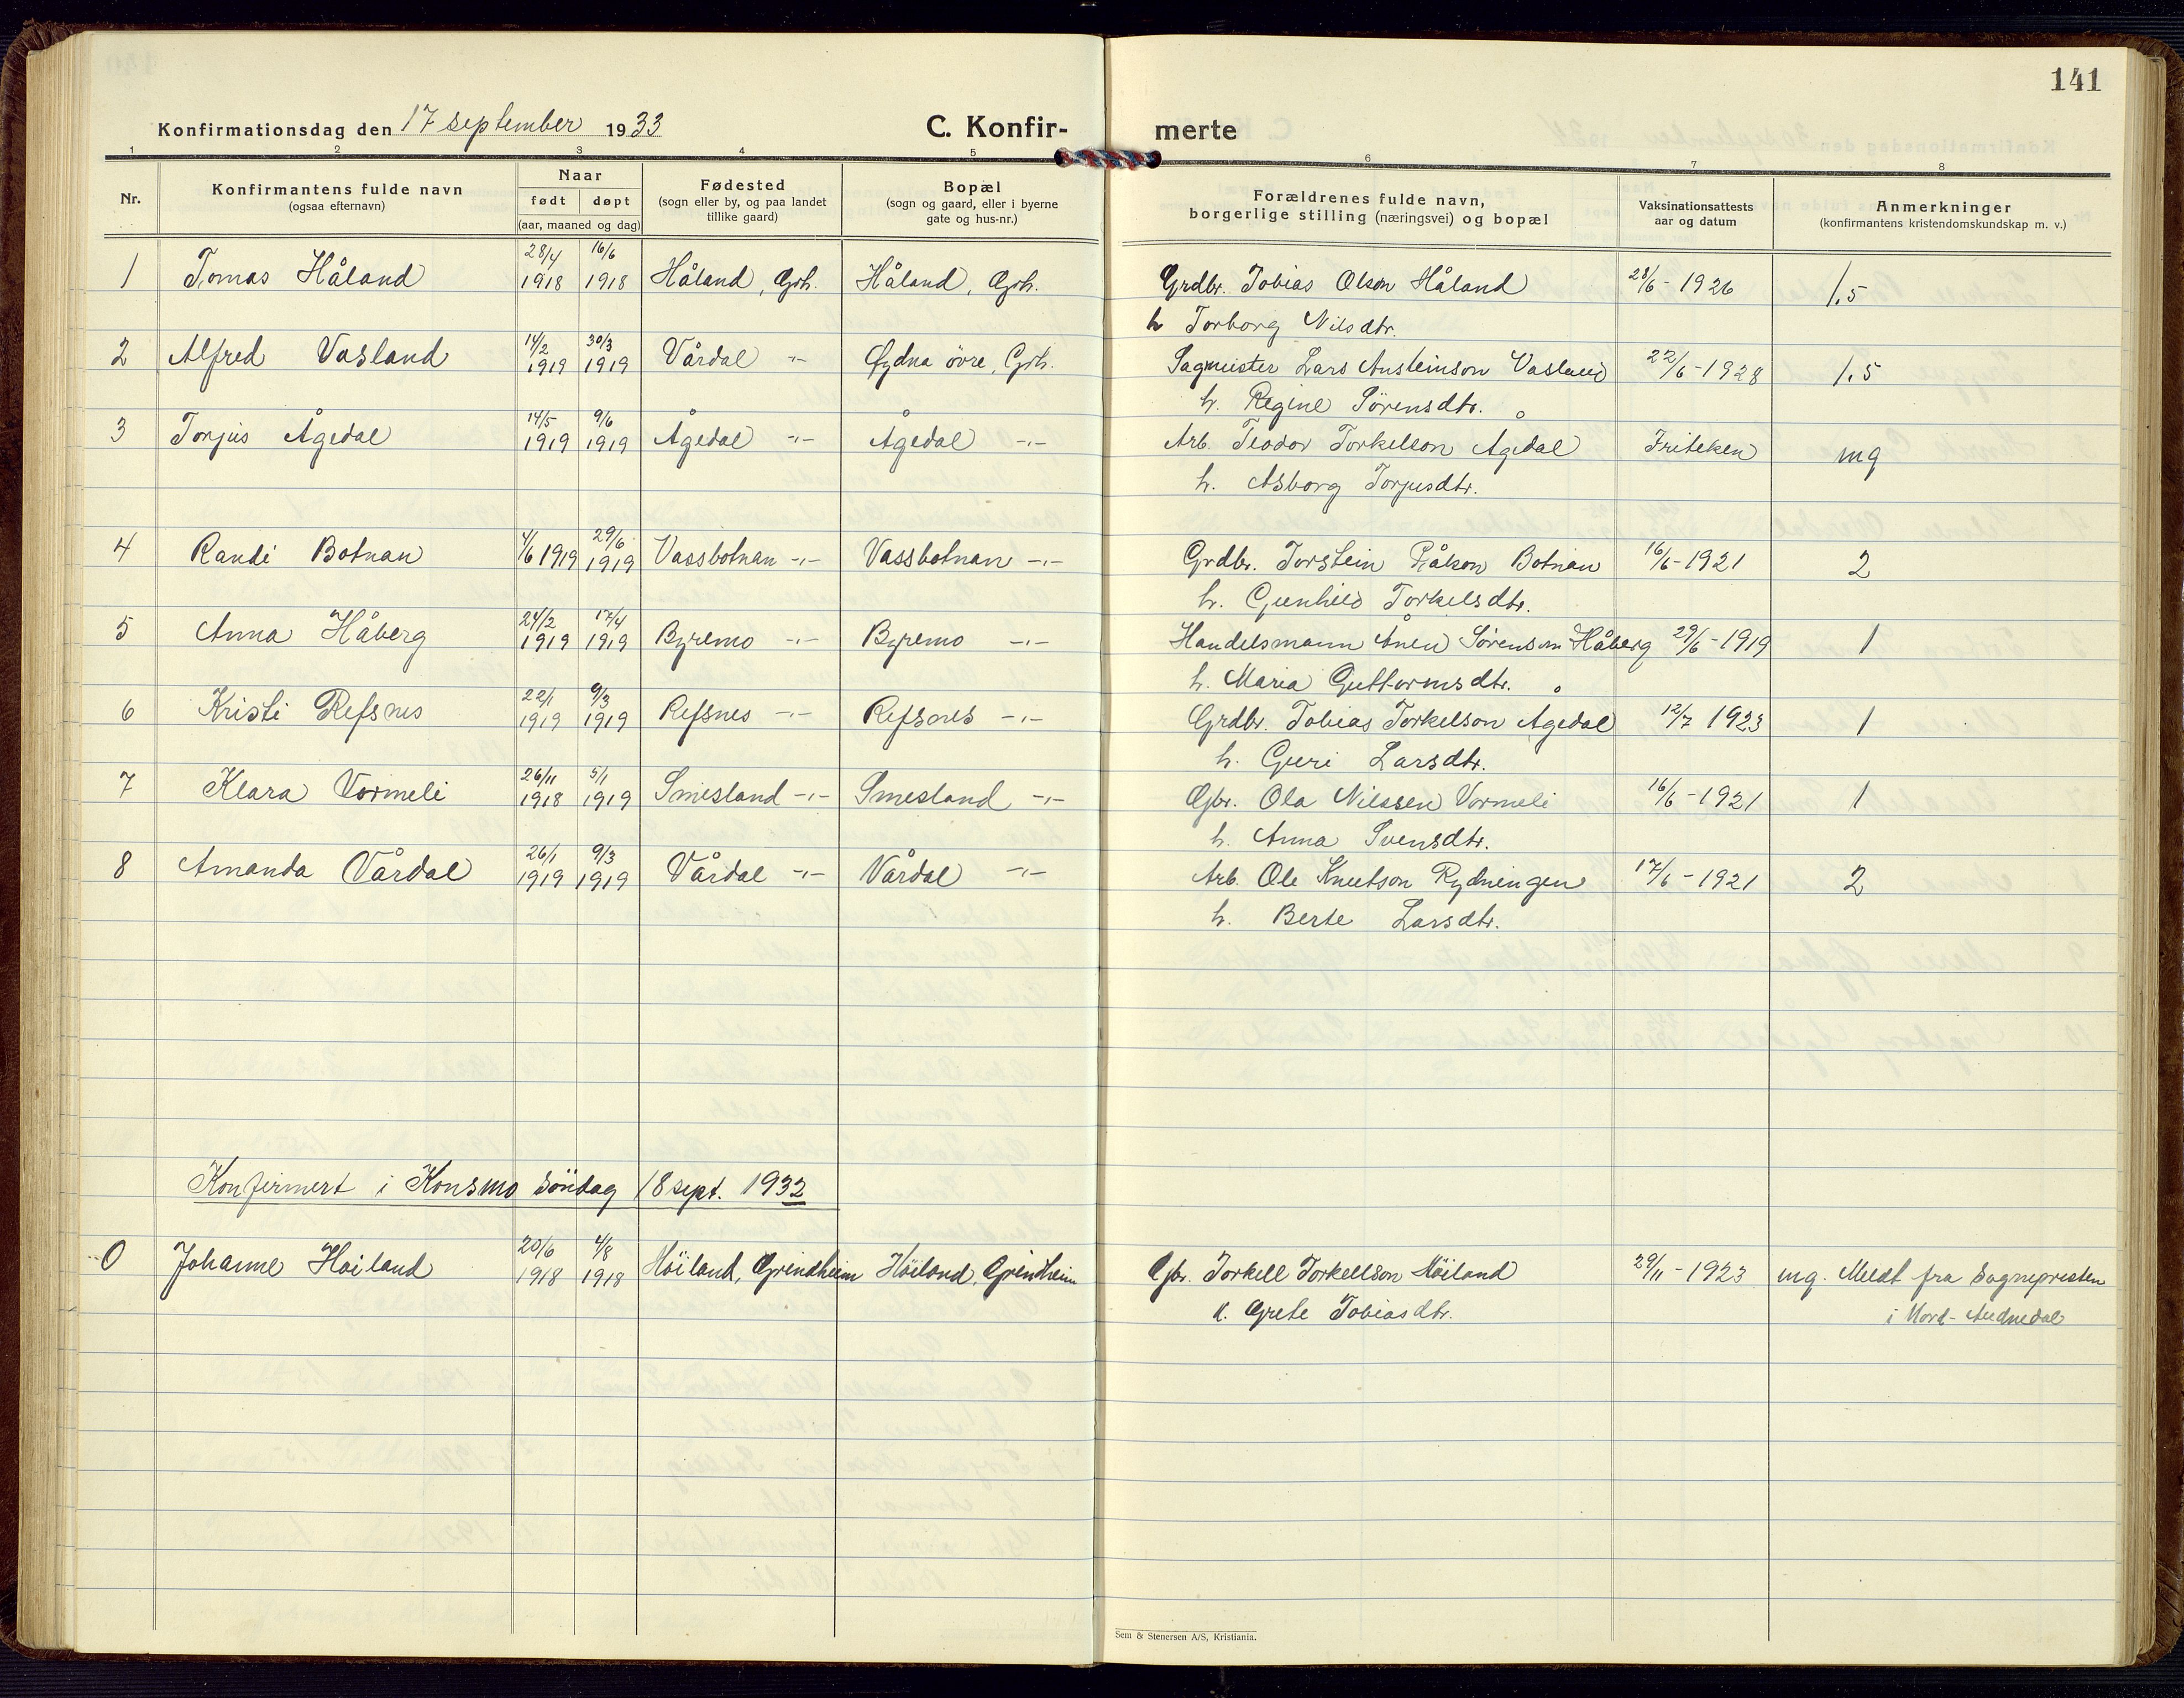 141
Konfirmationsdag den 17 september 1933 C. Konfir- merte
1 2 3 4 5 6 7 8
Nr. Konfirmantens fulde navn (ogsaa efternavn) Naar født døpt (aar, maaned og dag) Fødested (sogn eller by, og paa landet tillike gaard) Bopæl (sogn og gaard, eller i byerne gate og hus-nr.) Forældrenes fulde navn, borgerlige stilling (næringsvei) og bopæl Vaksinationsattests aar og datum Anmerkninger (konfirmantens kristendomskundskap m. v.)
1 Tomas Håland 28/4 1918 16/6 1918 Håland, Grh. Håland, Grh. Grdbr. Tobias Olson Håland 28/6 - 1926 1.5
h Torborg Nilsdtr.
2 Alfred Vasland 14/2 1919 30/3 1919 Vårdal -"- Gydna övre, Grh. Sagmester Lars Ansteinson Vasland 22/6 - 1928 1.5
h. Regine Sörensdtr.
3 Torjus Ågedal 14/5 1919 9/6 1919 Ågedal -"- Ågedal -"- Arb. Teodor Torkelson Ågedal Friteken mg
h. Asborg Torjusdtr.
4 Randi Botnan 4/6 1919 29/6 1919 Vassbotnan -"- Vassbotnan -"- Grdbr. Torstein Pålson Botnan 16/6 - 1921 2
h. Gunhild Torkelsdtr.
5 Anna Håberg 24/2 1919 17/4 1919 Byremo -"- Byremo -"- Handelsmann Ånen Sörenson Håberg 29/6 - 1919 1
h. Maria Guttormsdtr.
6 Kristi Refsnes 22/1 1919 9/3 1919 Refsnes -"- Refsnes -"- Grdbr. Tobias Torkelson Ågedal 12/7 1923 1
h. Guri Larsdtr.
7 Klara Vormeli 26/11 1918 5/1 1919 Smesland -"- Smesland -"- Gbr. Ola Nilssen Vormeli 16/6 - 1921 1
h. Anna Svensdtr.
8 Amanda Vårdal 26/1 1919 9/3 1919 Vårdal -"- Vårdal -"- Arb. Ole Knutson Rydningen 17/6 - 1921 2
h. Berte Larsdtr.
Konfirmert i Konsmo söndag 18 sept. 1932
0 Johanne Höiland 20/6 1918 4/8 1918 Höiland, Grindheim Höiland, Grindheim Gbr. Torkell Torkellson Höiland 29/11 - 1923 mg. Meldt fra Sognepresten
k. Grete Tobiasdtr. i Nord-Audnedal
Sem & Stenersen A/S, Kristiania.